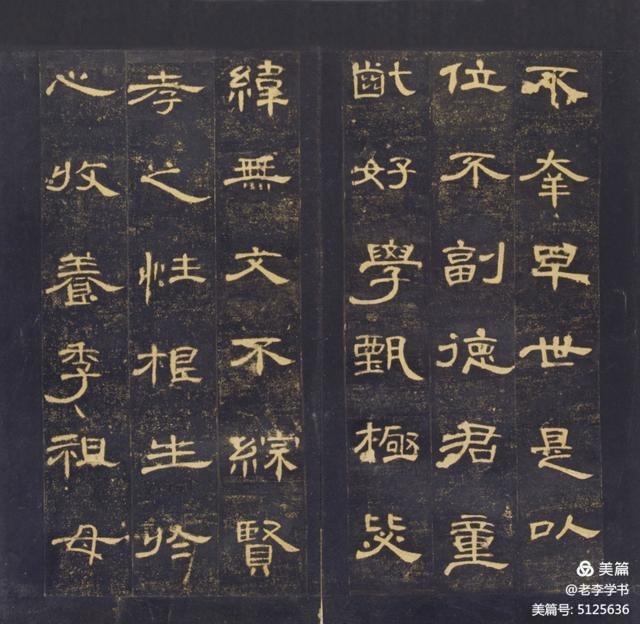 不幸早世是以
位不副德君童
齔好學甄極毖
緯無文不綜賢
孝之性根生於
心收養季祖母
美篇
@老李学书
美篇号: 5125636